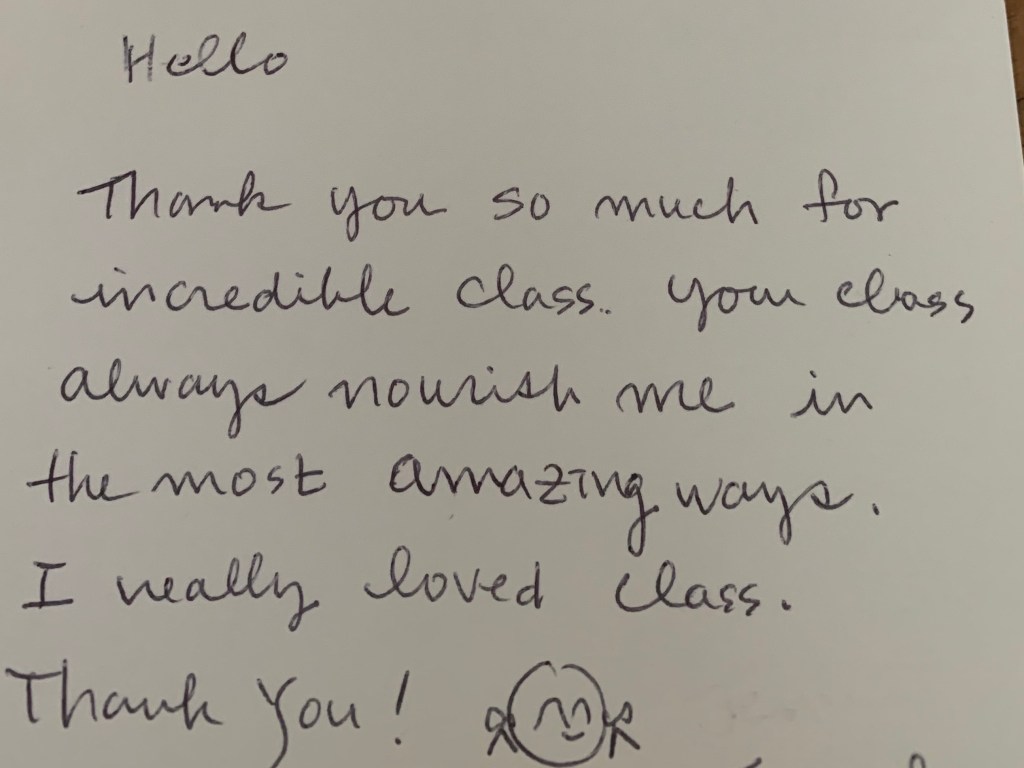 Hello
Thank you so much for
incredible class. your class
always nourish me in
the most amazing ways.
I really loved class.
Thank you!